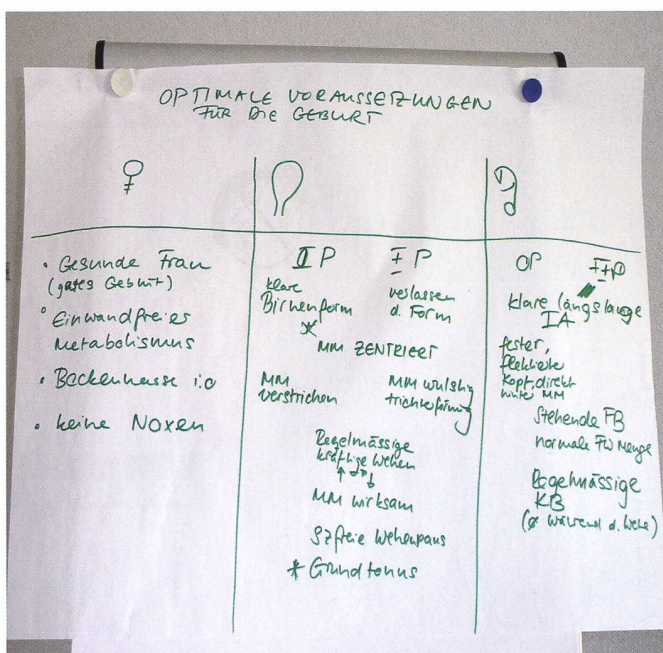 OPTIMALE VORAUSSETZUNGEN
FÜR DIE GEBURT
• Gesunde Frau
(gutes Geburt)
• Einwandfreier
Metabolismus
• Beckenmasse i.o
• keine Noxen
I P
klare
Birnenform
*
II P
verlassen
d. Form
MM ZENTRIERT
MM
verstrichen
MM wulstig
trichterförmig
Regelmässige
kräftige Wehen
MM wirksam
SZ freie Wehenpaus
* Grundtonus
OP
klare Längslage
IA
fester,
flektierter
Kopf, direkt
hinter MM
Stehende FB
normale FW Menge
Regelmässige
KB
(ø während d. Wehe)